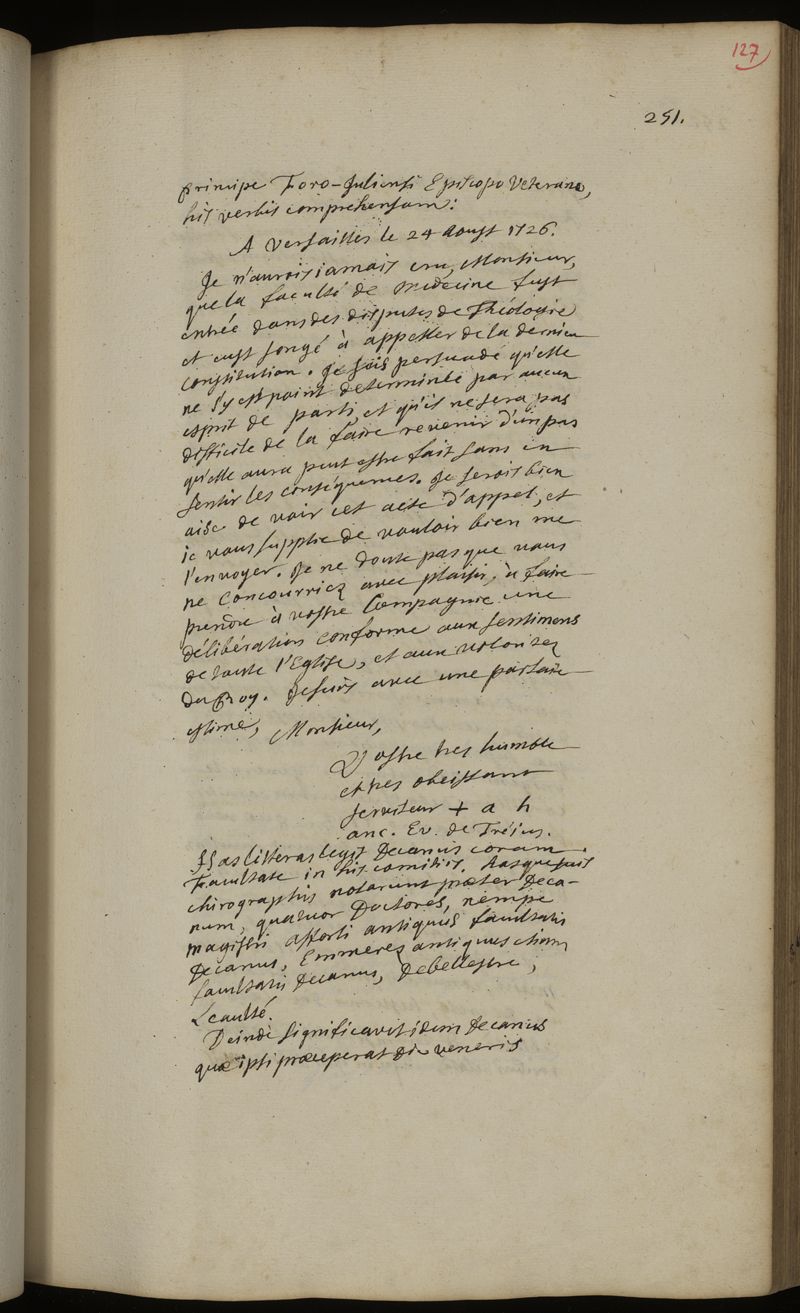 127
251.
principe Foro-Juliensi Episcopo Veterano,
his verbis comprehensam:
A Versailles le 24 Aoust 1726.
Je n'aurois iamais cru, Monsieur,
que la faculté de Medecine fust
entrée dans des disputes de Théologie
et eust songé à appeller de la derniere
Constitution. Je suis persuadé qu'elle
ne s'y est point determinée par aucun
esprit de parti, et qu'il ne sera pas
difficile de la faire revenir d'un pas
qu'elle aura peut estre fait sans en
sentir les conséquences. Je serois bien
aise de voir cet acte d'appel, et
ie vous supplie de vouloir bien me
l'envoyer. Je ne doute pas que vous
ne concourriez avec plaisir, à faire
prendre à vostre Compagnie une
délibération conforme aux sentimens
de toute l'Eglise, et aux volontez
du Roy. Je suis avec une parfaite
estime, Monsieur,
Vostre tres humble
et tres obeissant
serviteur + a h
anc. Ev. de Fréjus.
Has litteras legit Decanus coram
Facultate in his comitiis. Hasque suis
chirographis notarunt praeter Deca-
num, quatuor Doctores, nempe
magistri Afforti antiquus facultatis
Decanus, Emmerez antiquus etiam
facultatis Decanus, Debellestre,
Leaulté.
Deinde significavit idem Decanus
quae ipsi praeceperat die veneris